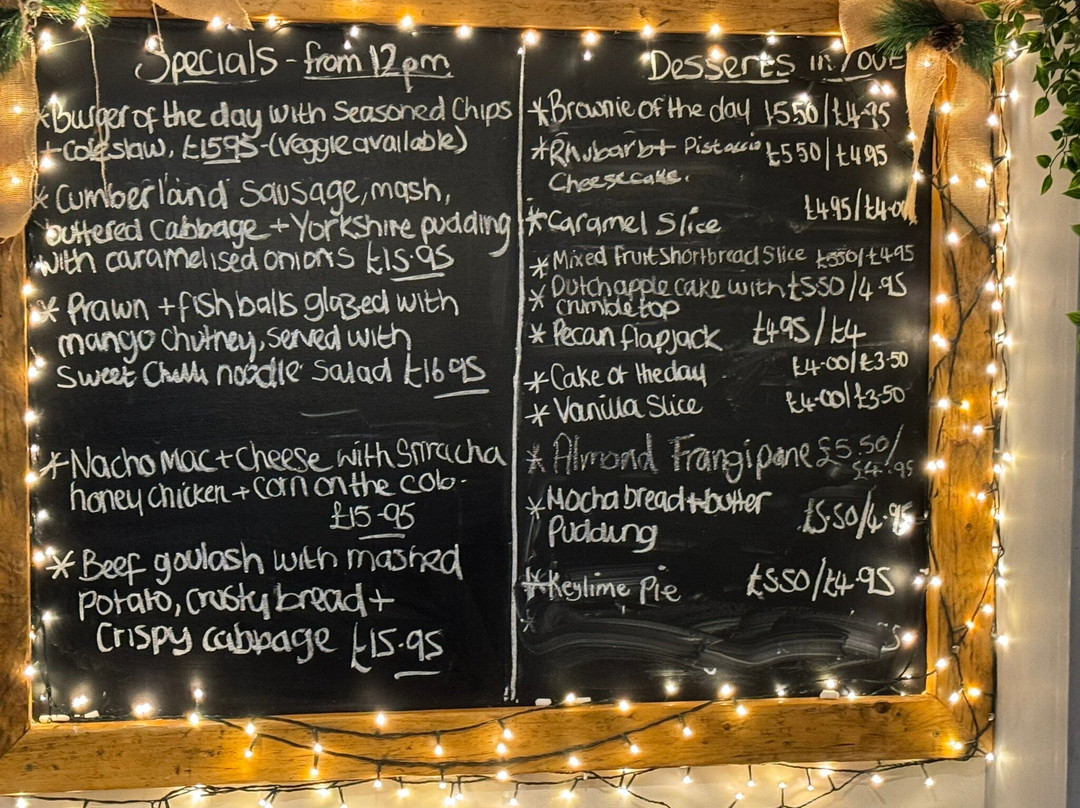 Specials - from 12pm
* Burger of the day with Seasoned Chips
+ coleslaw, £15.95 - (veggie available)
* Cumberland Sausage, mash,
buttered cabbage + Yorkshire pudding
with caramelised onions £15.95
* Prawn + fishballs glazed with
mango chutney, served with
Sweet Chilli noodle Salad £16.95
* Nacho Mac + Cheese with Sriracha
honey chicken + corn on the cob.
£15-95
* Beef goulash with mashed
potato, crusty bread +
crispy cabbage £15.95
Desserts in/out
* Brownie of the day £5.50/£4.95
* Rhubarb + Pistacio £5.50/£4.95
Cheesecake.
* Caramel Slice £4.95/£4.00
* Mixed Fruit Shortbread Slice £5.50/£4.95
* Dutch apple cake with £5.50/4.95
crumble top
* Pecan flapjack £4.95/£4
* Cake of the day £4.00/£3.50
* Vanilla Slice £4.00/£3.50
* Almond Frangipane £5.50/
£4.95
* Mocha bread + butter
Pudding £5.50/4.95
* Keylime Pie £5.50/£4.95
*